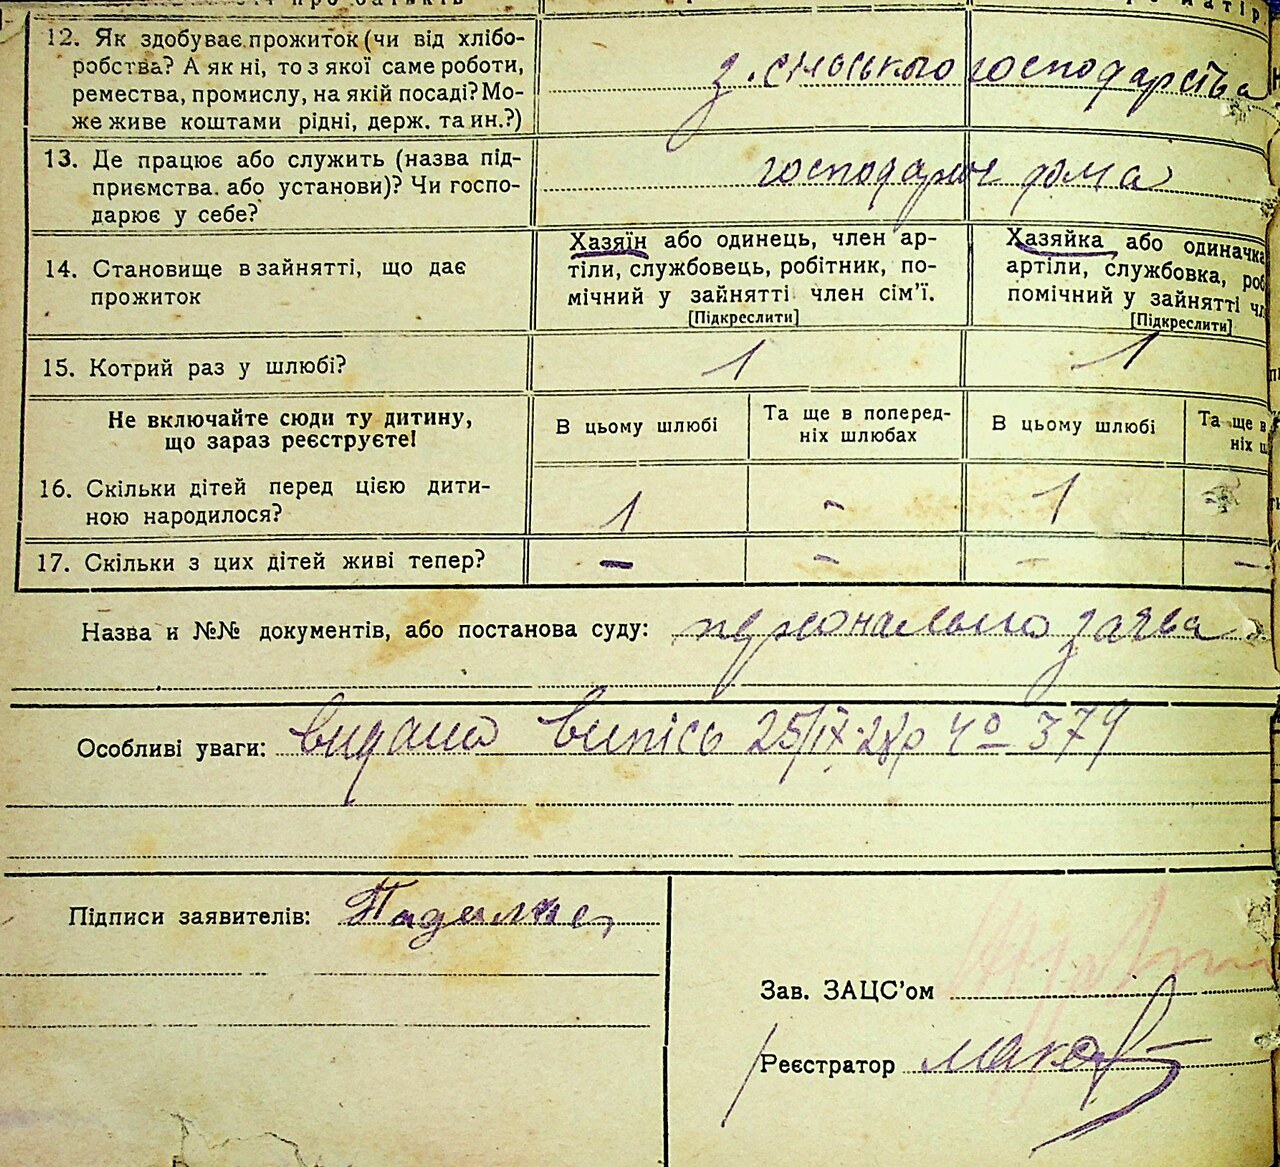 про батьків
12. Як здобуває прожиток (чи від хлібо-
робства? А як ні, то з якої саме роботи,
ремества, промислу, на якій посаді? Мо-
же живе коштами рідні, держ. та ин.?)
з сільського господарства
13. Де працює або служить (назва під-
приємства. або установи)? Чи госпо-
дарює у себе?
господарює дома
14. Становище в зайнятті, що дає
прожиток
Хазяїн або одинець, член ар-
тіли, службовець, робітник, по-
мічний у зайнятті член сім'ї.
[Підкреслити]
Хазяйка або одиначка
артіли, службовка, роб
помічний у зайнятті чл
[Підкреслити]
15. Котрий раз у шлюбі?
1 1
Не включайте сюди ту дитину,
що зараз реєструєте!
В цьому шлюбі
Та ще в поперед-
ніх шлюбах
В цьому шлюбі
Та ще в
ніх ш
16. Скільки дітей перед цією дити-
ною народилося?
1 - 1
17. Скільки з цих дітей живі тепер?
- - - -
Назва и №№ документів, або постанова суду: персонально заява
Особливі уваги: видано випісь 25/IX-28р 379
Підписи заявителів:
Зав. ЗАЦС'ом
Реєстратор